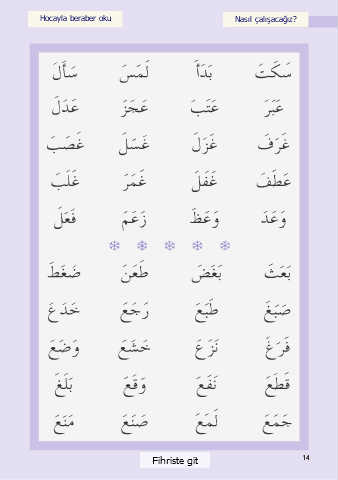 Hocayla beraber oku
Nasıl çalışacağız?
سَكَتَ بَدَأَ لَمَسَ سَأَلَ
عَبَرَ عَتَبَ عَجَزَ عَدَلَ
غَرَفَ غَزَلَ غَسَلَ غَصَبَ
عَطَفَ غَفَلَ غَمَرَ غَلَبَ
وَعَدَ وَعَظَ زَعَمَ فَعَلَ
بَعَثَ بَغَضَ طَعَنَ ضَغَطَ
صَبَغَ طَبَعَ رَجَعَ خَدَعَ
فَرَغَ نَزَعَ خَشَعَ وَضَعَ
قَطَعَ نَفَعَ وَقَعَ بَلَغَ
جَمَعَ لَمَعَ صَنَعَ مَنَعَ
Fihriste git
14